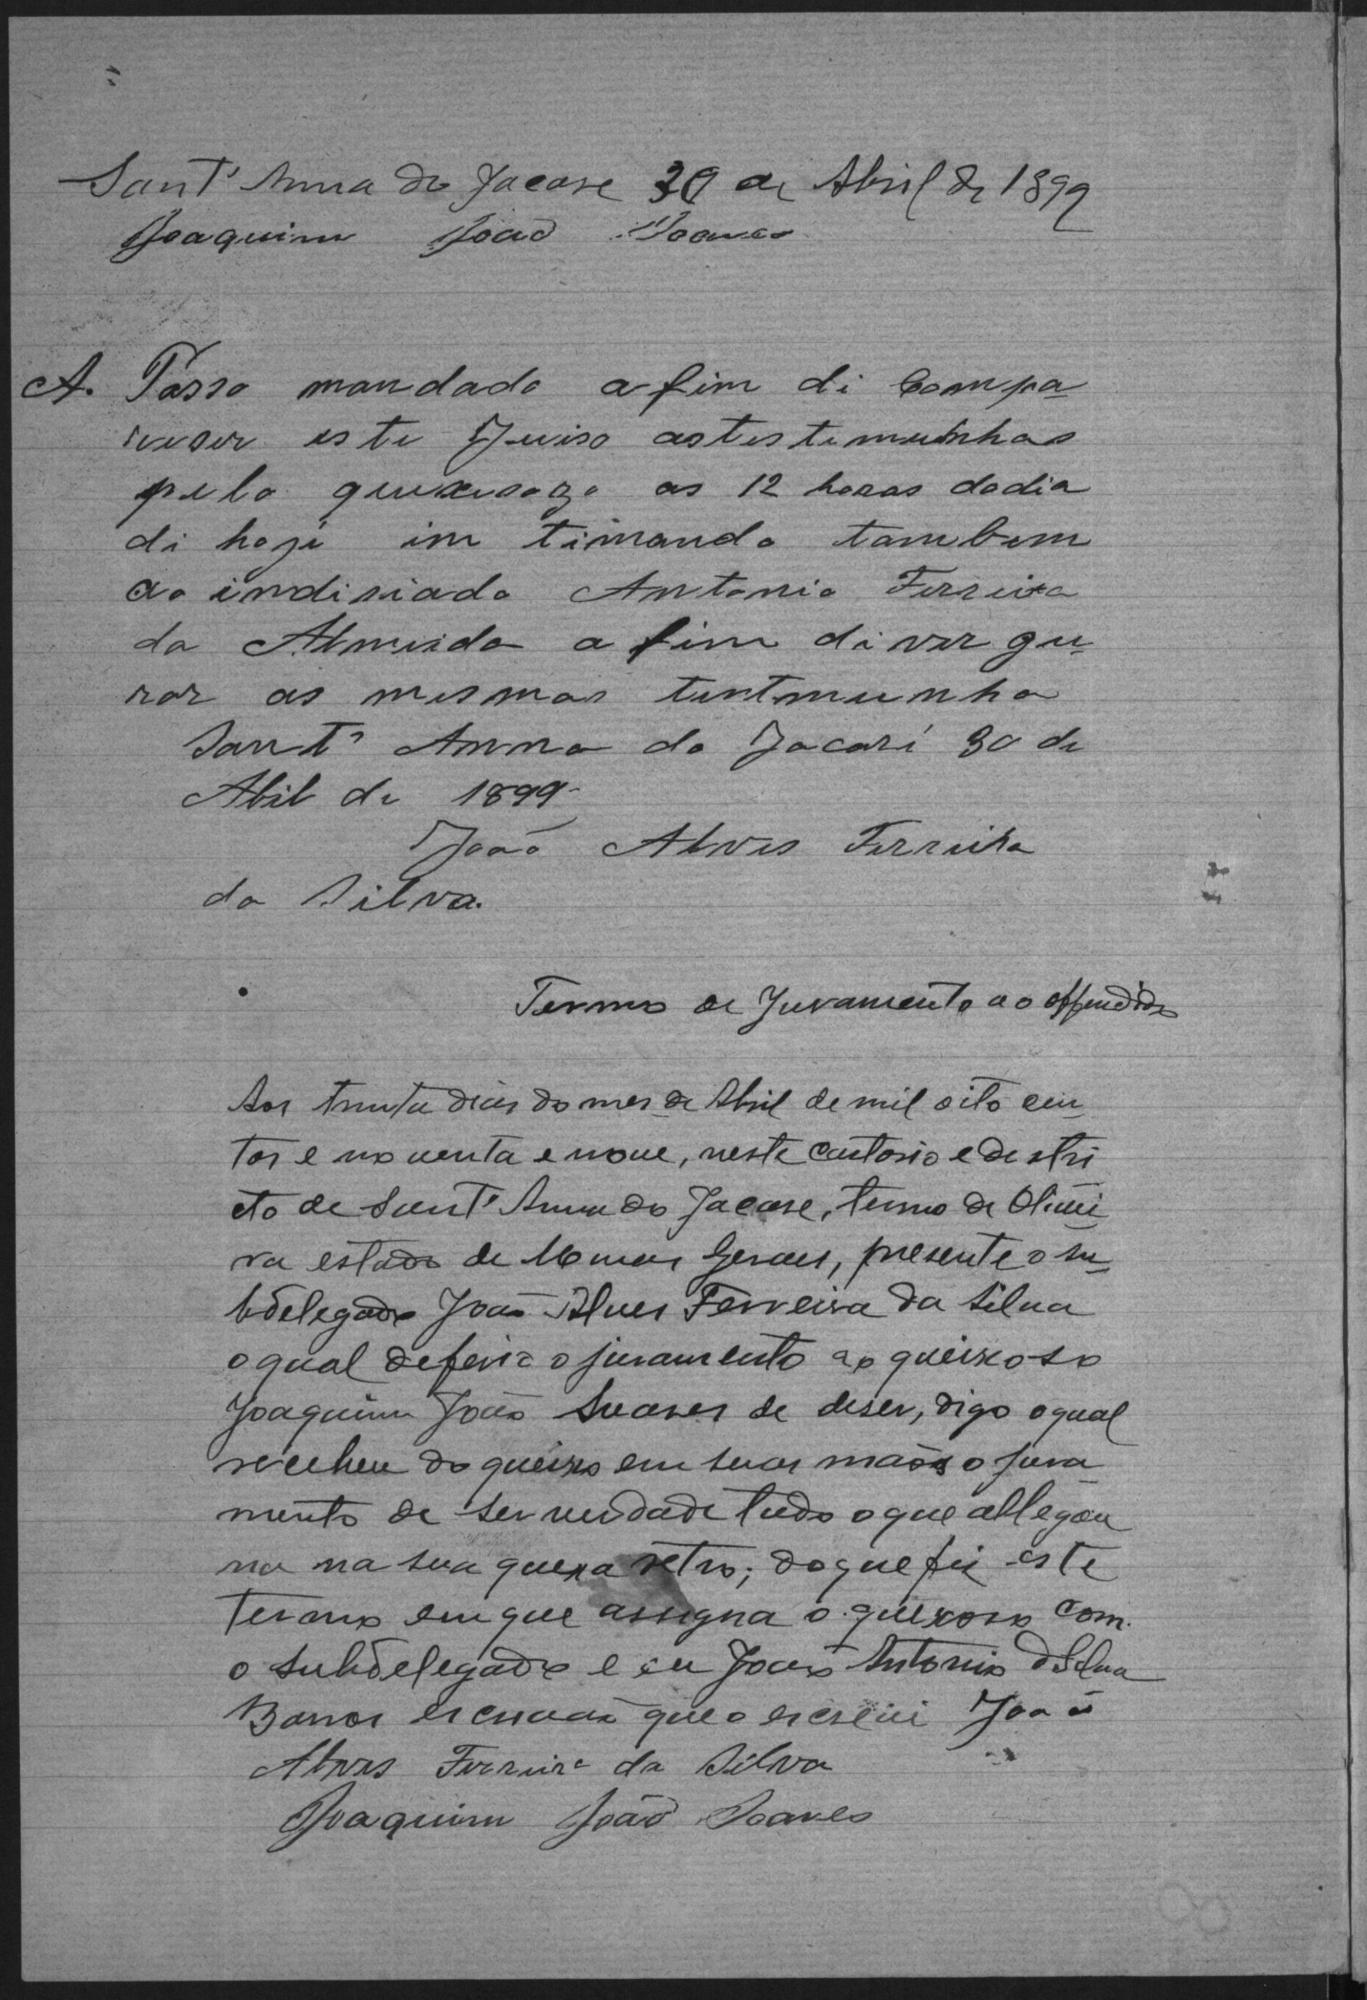 Sant' Anna do Jacare 30 de Abril de 1899
Joaquim João Soares
A. Passo mandado a fim di Compa-
reser este Juiso astestemunhas
pelo queixosozo as 12 horas dodia
di hoje in timando tambem
ao indisiado Antonio Ferreira
da Almeida a fim di ver gu-
rar as mesmas testmunha
Sant' Anna do Jacaré 30 de
Abil de 1899
João Alves Ferreira
da Silva.
Termo de Juramento ao offendido
Aos trinta dias do mes de Abril de mil oito cen
tos e noventa e nove, neste cartorio e destri
cto de Sant' Anna do Jacare, termo de Olivei
ra estado de Minas Geraes, presente o su-
bdelegado João Alves Ferreira da Silva
o qual deferio o juramento ao queixoso
Joaquim João Suares de deser, digo o qual
recebeu do queixo em suas mãos o jura
mento de ser verdade tudo o que allegou
na na sua queixa retro; do que fiz este
termo em que assigna o queixoso com
o subdelegado e eu João Antonio dSilva
Barros escrivão que o escrevi João
Alves Ferreira da Silva
Joaquim João Soares